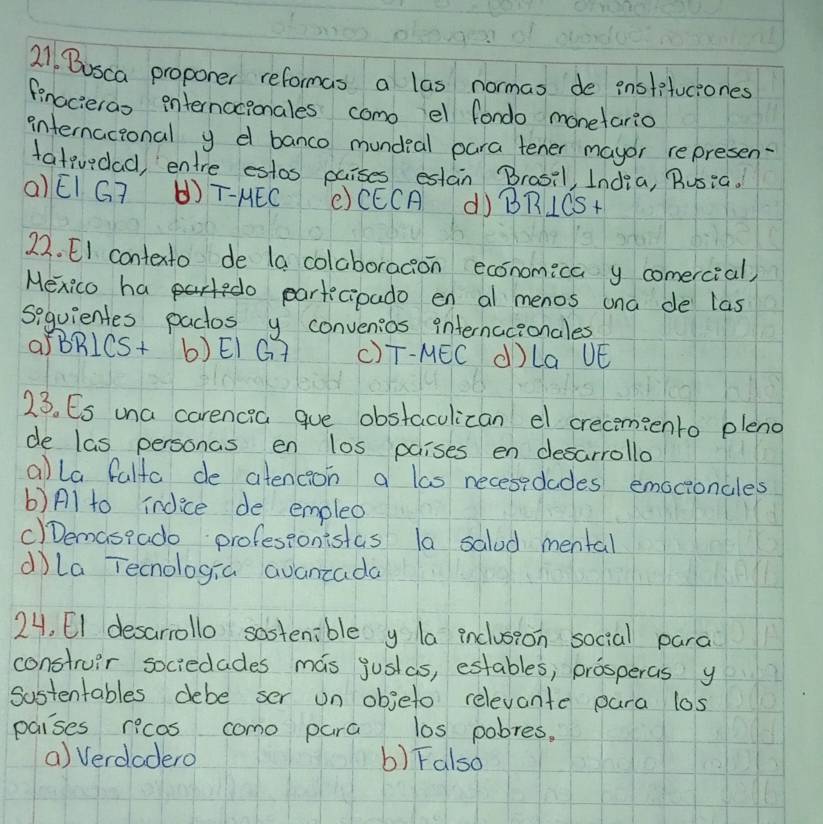 21. Busca proponer reformas a las normas de instituciones
finacieras internacionales como el fondo monetario
internacional y el banco mundial para tener mayor represen-
tatividad, entre estos países están Brasil, India, Rusia.
a) El G7 b) T-MEC c) CECA d) BRICS+
22. El contexto de la colaboración económica y comercial,
México ha partido participado en al menos una de las
siguientes pactos y convenios internacionales
a) BRICS+ b) El G7 c) T-MEC d) La UE
23. Es una carencia que obstaculizan el crecimiento pleno
de las personas en los países en desarrollo
a) La falta de atención a las necesidades emocionales
b) Alto índice de empleo
c) Demasiado profesionistas la salud mental
d) La Tecnología avanzada
24. El desarrollo sostenible y la inclusión social para
construir sociedades más justas, estables, prósperas y
sustentables debe ser un objeto relevante para los
países ricos como para los pobres.
a) Verdadero b) Falso